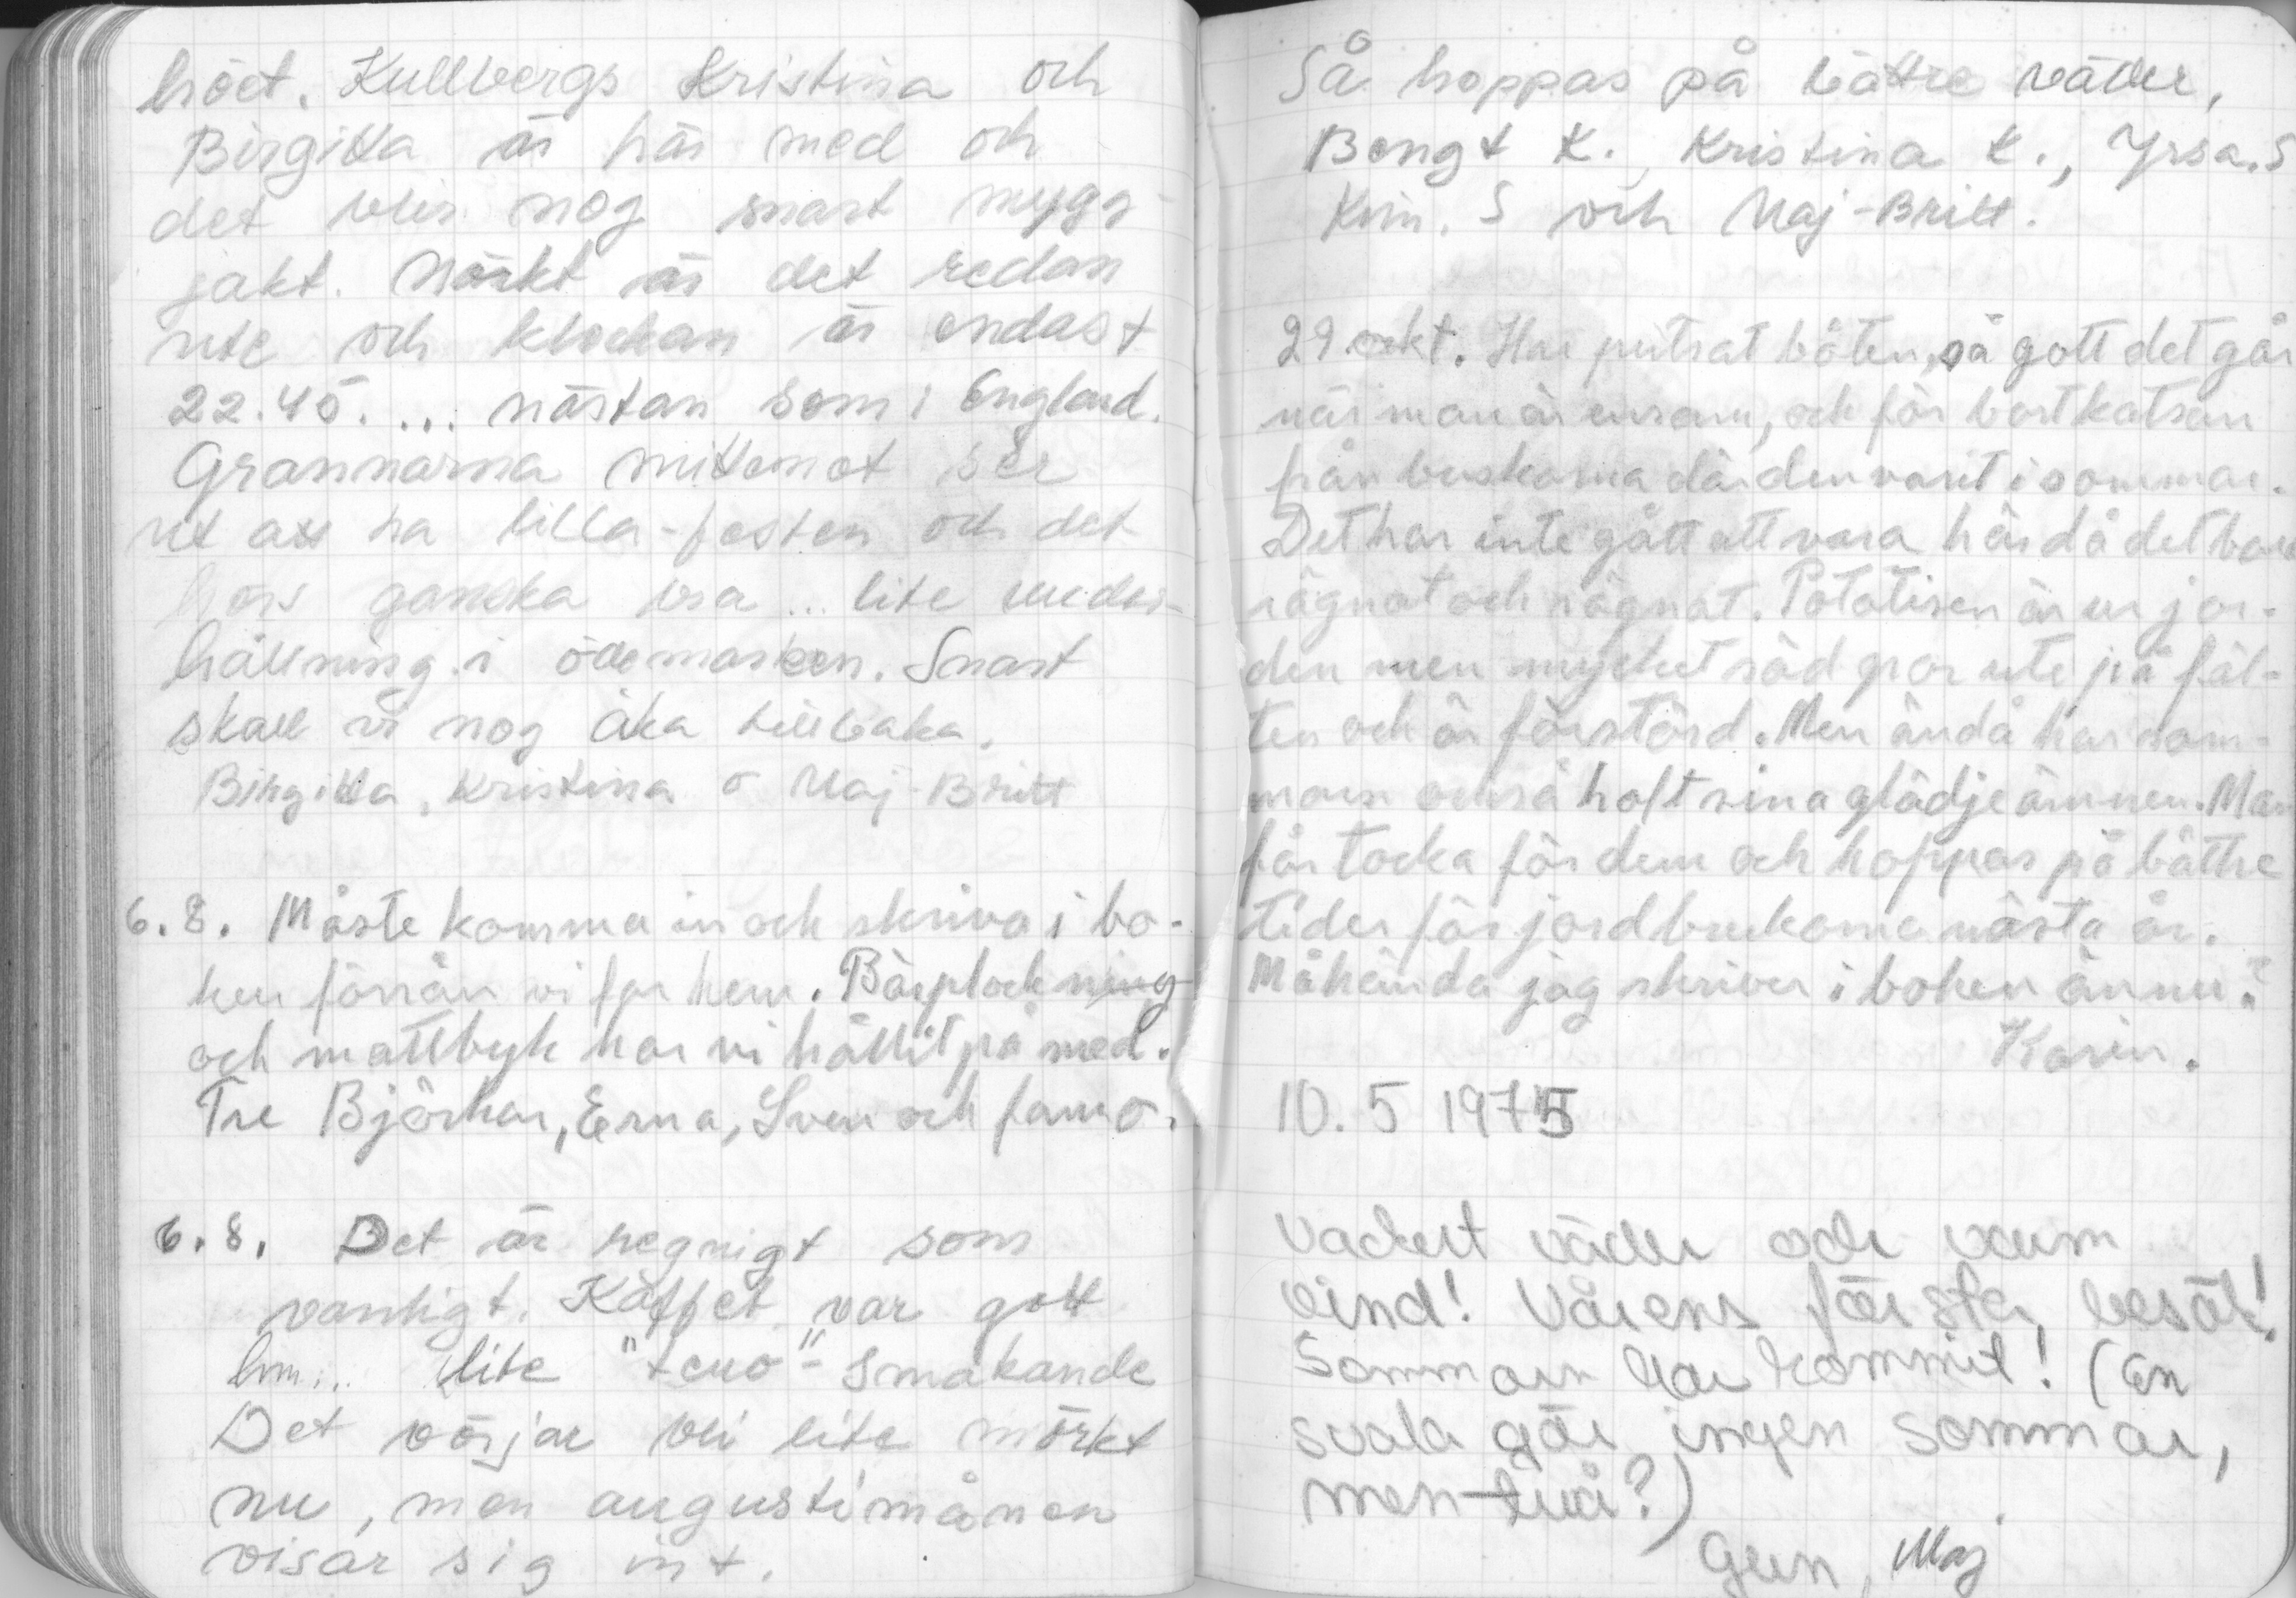 höet. Kullbergs Kristina och
Birgitta är här med och
det blir nog snart mygg-
jakt. Mörkt är det redan
ute och klockan är endast
22.45. ... nästan som i England.
Grannarna mittemot ser
ut att ha lilla-festen och det
hörs ganska bra ... lite under-
hållning i ödemarken. Snart
skall vi nog åka tillbaka.
Birgitta, Kristina o Maj-Britt
6.8. Måste komma in och skriva i bo-
ken förrän vi far hem. Bärplockning
och mattbyk har vi hållit på med.
Tre Björkar, Erna, Sven och famo.
6.8. Det är regnigt som
vanligt. Kaffet var gott
hm... lite "teno"-smakande
Det börjar bli lite mörkt
nu, men augustimånen
visar sig int.
Så hoppas på bättre väder,
Bengt K., Kristina K., Yrsa.S
Kim. S och Maj-Britt.
29 okt. Har putsat båten, så gott det går
när man är ensam, och för bort katsan
från buskarna där den varit i sommar.
Det har inte gått att vara här då det bara
rägnat och rägnat. Potatisen är ur jor-
den men mycket säd gror ute på fäl-
ten och är förstörd. Men ändå har som-
marn också haft sina glädjeämnen. Man
får tacka för dem och hoppas på bättre
tider för jordbrukarna nästa år.
Måhända jag skriver i boken ännu?
Karin.
10. 5 1975
Vackert väder och varm
vind! Vårens första besök!
Sommarn har kommit! (En
svala gör ingen sommar,
men två?)
Gun, Maj